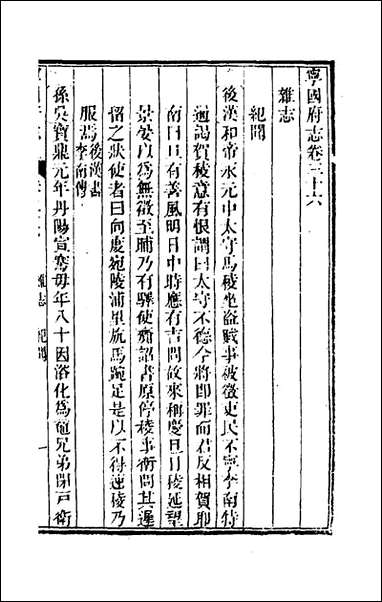 寧國府志卷三十六
雜志
紀聞
後漢和帝永元中太守馬稜坐盜賊事被徵吏民不寧李南特
通謁賀稜意有恨謂曰太守不德今將即罪而君反相賀耶
南曰旦有善風明日中時應有吉問故來稱慶旦日稜延望
景晏以為無徵至晡乃有驛使齎詔書原停稜事南問其遲
留之狀使者曰向度宛陵浦里䑨馬踠足是以不得速稜乃
服焉後漢書李南傳
孫吳寶鼎元年丹陽宣騫母年八十因浴化為黿兄弟閉戶衛
雜志 紀聞 一